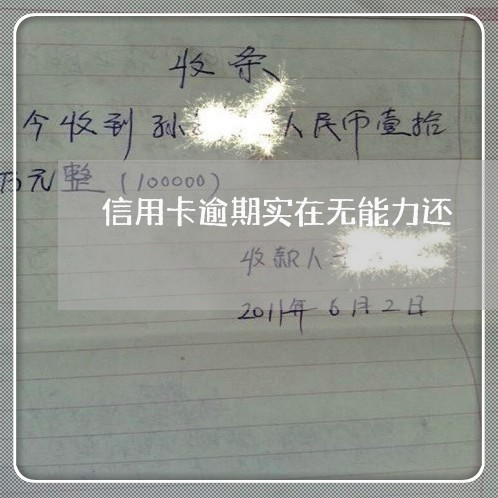 收条
今收到孙 人民币壹拾
万元整(100000)
信用卡逾期实在无能力还
收款人
2011年6月2日